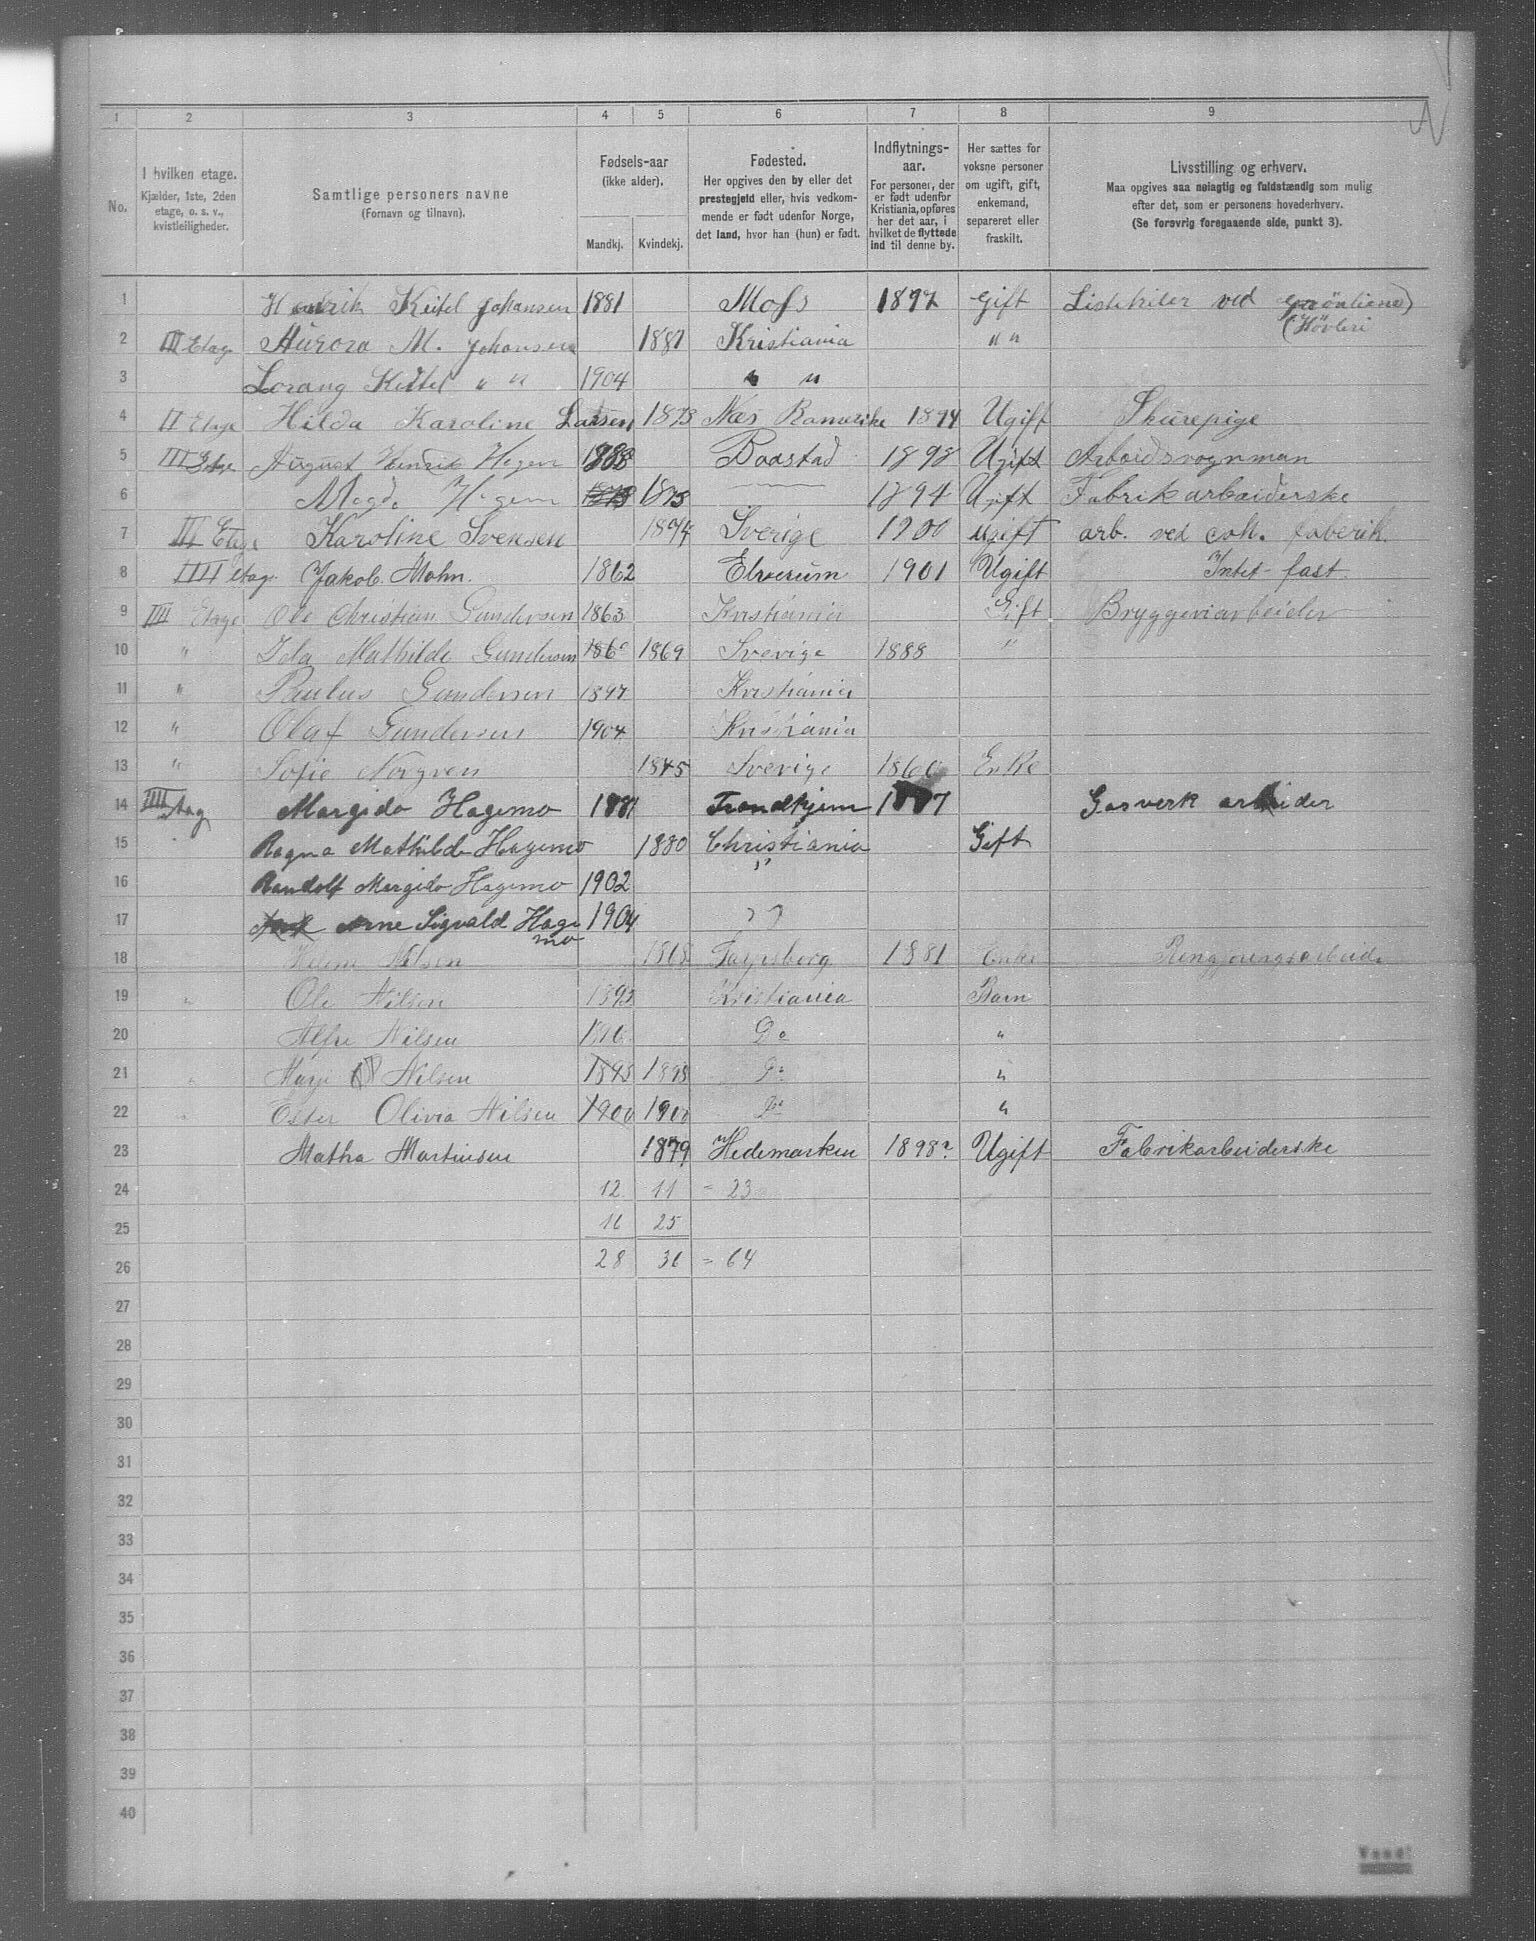 1 2 3 4 5 6 7 8 9
No.
I hvilken etage.
Kjælder, 1ste, 2den
etage, o. s. v.,
kvistleiligheder.
Samtlige personers navne
(Fornavn og tilnavn).
Fødsels-aar
(ikke alder).
Mandkj. Kvindekj.
Fødested.
Her opgives den by eller det
prestegjeld eller, hvis vedkom-
mende er født udenfor Norge,
det land, hvor han (hun) er født.
Indflytnings-
aar.
For personer, der
er født udenfor
Kristiania, opføres
her det aar, i
hvilket de flyttede
ind til denne by.
Her sættes for
voksne personer
om ugift, gift,
enkemand,
separeret eller
fraskilt.
Livsstilling og erhverv.
Maa opgives saa nøiagtig og fuldstændig som mulig
efter det, som er personens hovederhverv.
(Se forøvrig foregaaende side, punkt 3).
1 Henrik Keitel Johansen 1881 Moss 1897 Gift ved
(Høvleri
2 III Etag Aurora M. Johansen 1881 Kristiania " "
3 Lorang Keitel " " 1904 " "
4 II Etage Hilda Karoline Larsen 1873 Næs Romerike 1894 Ugift Skurepige
5 III Etage August Henrik Hagen 1888 Baastad 1898 Ugift Arbeidsvognman
6 Magda Hagen 1873 1873 1894 Ugift Fabrikarbeiderske
7 III Etage Karoline Svensen 1874 Sverige 1900 ugift arb. ved faberik.
8 IIII etag. Jakob Mohn. 1862 Elverum 1901 Ugift Intet fast
9 IIII Etage Ole Christian Gundersen 1863 Kristiania Gift Bryggeriarbeider
10 " Ida Mathilde Gundersen 1869 Sverige 1888 "
11 " Paulus Gundersen 1897 Kristiania
12 " Olaf Gundersen 1904 Kristiania
13 " Sofie Norgren 1845 Sverige 1860 Enke
14 IIII Etag Margido Hagemo 1881 Trondhjem 1887 Gasverk arbeider
15 Ragna Mathilde Hagemo 1880 Christiania Gift
16 Randolf Margido Hagemo 1902 "
17 Arne Sigvald Hage 1904 " "
mo
18 Nilsen 1868 1881 Enke Rengjøringsarbeide
19 " Ole Nilsen 1893 Kristiania Barn
20 Nilsen Do "
21 " Nilsen 1898 1898 Do "
22 " Ester Olivia Nilsen 1900 1900 Do "
23 Matha Martinsen 1879 Hedemarken 1898 Ugift Fabrikarbeiderske
24 12 11 = 23
25 16 25
26 28 36 = 64
27
28
29
30
31
32
33
34
35
36
37
38
39
40